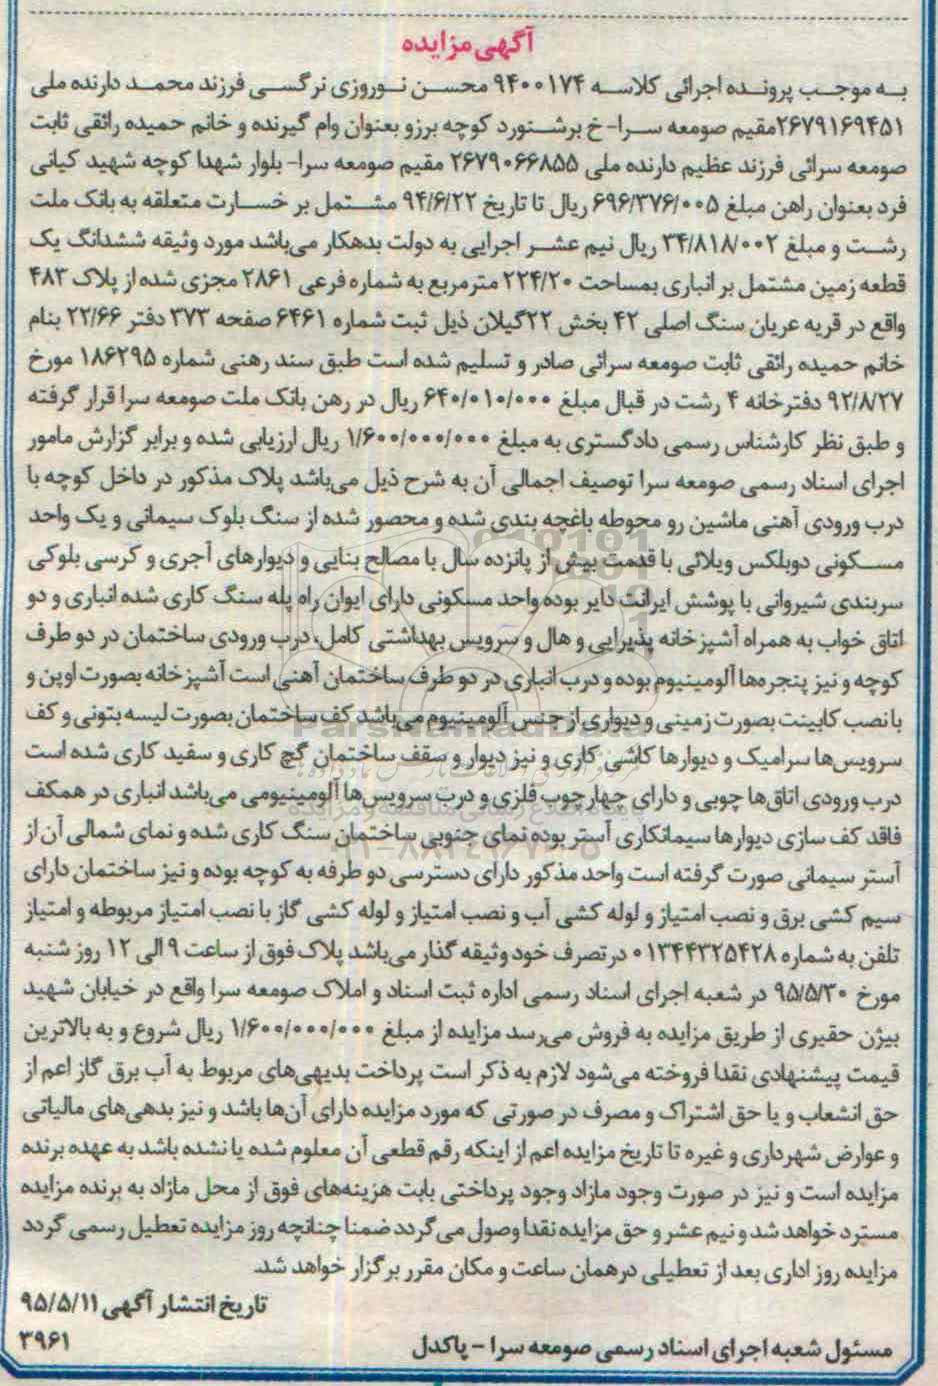 آگهی مزایده
به موجب پرونده اجرائی کلاسه ۹۴۰۰۱۷۴ محسن نوروزی نرگسی فرزند محمد دارنده ملی
۲۶۷۹۱۶۹۴۵۱مقیم صومعه سرا- خ برشنورد کوچه برزو بعنوان وام گیرنده و خانم حمیده رائقی ثابت
صومعه سرائی فرزند عظیم دارنده ملی ۲۶۷۹۰۶۶۸۵۵ مقیم صومعه سرا- بلوار شهدا کوچه شهید کیانی
فرد بعنوان راهن مبلغ ۶۹۶/۳۷۶/۰۰۵ ریال تا تاریخ ۹۴/۶/۲۲ مشتمل بر خسارت متعلقه به بانک ملت
رشت و مبلغ ۳۴/۸۱۸/۰۰۲ ریال نیم عشر اجرایی به دولت بدهکار می‌باشد مورد وثیقه ششدانگ یک
قطعه زمین مشتمل بر انباری بمساحت ۲۲۴/۲۰ مترمربع به شماره فرعی ۲۸۶۱ مجزی شده از پلاک ۴۸۳
واقع در قریه عریان سنگ اصلی ۴۲ بخش ۲۲گیلان ذیل ثبت شماره ۶۴۶۱ صفحه ۳۷۳ دفتر ۲۲/۶۶ بنام
خانم حمیده رائقی ثابت صومعه سرائی صادر و تسلیم شده است طبق سند رهنی شماره ۱۸۶۲۹۵ مورخ
۹۲/۸/۲۷ دفترخانه ۴ رشت در قبال مبلغ ۶۴۰/۰۱۰/۰۰۰ ریال در رهن بانک ملت صومعه سرا قرار گرفته
و طبق نظر کارشناس رسمی دادگستری به مبلغ ۱/۶۰۰/۰۰۰/۰۰۰ ریال ارزیابی شده و برابر گزارش مامور
اجرای اسناد رسمی صومعه سرا توصیف اجمالی آن به شرح ذیل می‌باشد پلاک مذکور در داخل کوچه با
درب ورودی آهنی ماشین رو محوطه باغچه بندی شده و محصور شده از سنگ بلوک سیمانی و یک واحد
مسکونی دوبلکس ویلائی با قدمت بیش از پانزده سال با مصالح بنایی و دیوارهای آجری و کرسی بلوکی
سربندی شیروانی با پوشش ایرانت دایر بوده واحد مسکونی دارای ایوان راه پله سنگ کاری شده انباری و دو
اتاق خواب به همراه آشپزخانه پذیرایی و هال و سرویس بهداشتی کامل، درب ورودی ساختمان در دو طرف
کوچه و نیز پنجره‌ها آلومینیوم بوده و درب انباری در دو طرف ساختمان آهنی است آشپزخانه بصورت اوپن و
با نصب کابینت بصورت زمینی و دیواری از جنس آلومینیوم می‌باشد کف ساختمان بصورت لیسه بتونی و کف
سرویس‌ها سرامیک و دیوارها کاشی کاری و نیز دیوار و سقف ساختمان گچ کاری و سفید کاری شده است
درب ورودی اتاق‌ها چوبی و دارای چهارچوب فلزی و درب سرویس‌ها آلومینیومی می‌باشد انباری در همکف
فاقد کف سازی دیوارها سیمانکاری آستر بوده نمای جنوبی ساختمان سنگ کاری شده و نمای شمالی آن از
آستر سیمانی صورت گرفته است واحد مذکور دارای دسترسی دو طرفه به کوچه بوده و نیز ساختمان دارای
سیم کشی برق و نصب امتیاز و لوله کشی آب و نصب امتیاز و لوله کشی گاز با نصب امتیاز مربوطه و امتیاز
تلفن به شماره ۰۱۳۴۴۳۲۵۴۲۸ در تصرف خود وثیقه گذار می‌باشد پلاک فوق از ساعت ۹ الی ۱۲ روز شنبه
مورخ ۹۵/۵/۳۰ در شعبه اجرای اسناد رسمی اداره ثبت اسناد و املاک صومعه سرا واقع در خیابان شهید
بیژن حقیری از طریق مزایده به فروش می‌رسد مزایده از مبلغ ۱/۶۰۰/۰۰۰/۰۰۰ ریال شروع و به بالاترین
قیمت پیشنهادی نقدا فروخته می‌شود لازم به ذکر است پرداخت بدیهی‌های مربوط به آب برق گاز اعم از
حق انشعاب و یا حق اشتراک و مصرف در صورتی که مورد مزایده دارای آن‌ها باشد و نیز بدهی‌های مالیاتی
و عوارض شهرداری و غیره تا تاریخ مزایده اعم از اینکه رقم قطعی آن معلوم شده یا نشده باشد به عهده برنده
مزایده است و نیز در صورت وجود مازاد وجود پرداختی بابت هزینه‌های فوق از محل مازاد به برنده مزایده
مسترد خواهد شد و نیم عشر و حق مزایده نقدا وصول می‌گردد ضمنا چنانچه روز مزایده تعطیل رسمی گردد
مزایده روز اداری بعد از تعطیلی در همان ساعت و مکان مقرر برگزار خواهد شد.
تاریخ انتشار آگهی ۹۵/۵/۱۱
مسئول شعبه اجرای اسناد رسمی صومعه سرا - پاکدل
۳۹۶۱